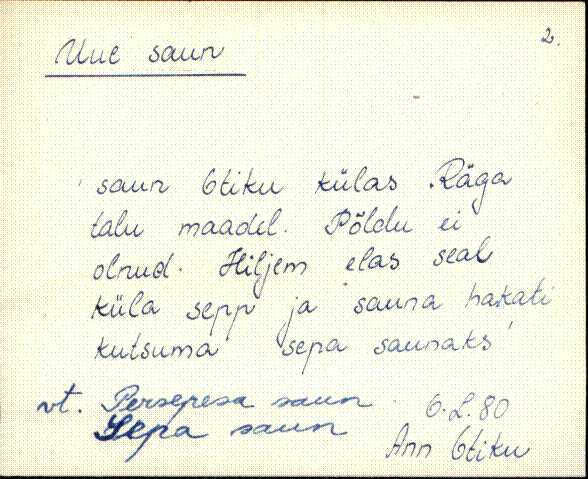 2.
Uue saun
'saun Otiku külas Räga
talu maadel. Põldu ei
olnud. Hiljem elas seal
küla sepp ja sauna hakati
kutsuma sepa saunaks'
vt. Persepesa saun
Sepa saun
O.L. 80
Ann Otiku